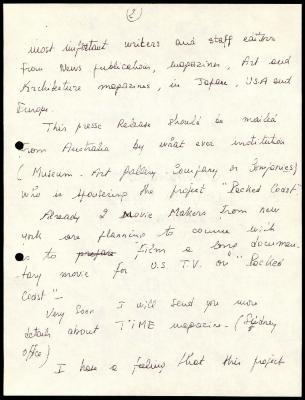 (2)
most important writers and staff editors
from News publications, magazines, Art and
Architecture magazines, in Japan, USA and
Europe.
This presse Release should be mailed
from Australia by what ever institution
(Museum. Art Gallery. Company or Companies)
who is sponsering the project "Packed Coast"
Already 2 Movie Makers from new
york are planning to comme with
us to prepare film a long documen.
tary movie for U.S T.V. on "Packed
Coast"-
Very Soon I will send you more
details about TIME magazine. (Sydney
office)
I have a feeling that this project